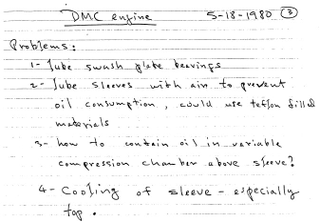 DMC engine 5-18-1980 ③
Problems:
1- lube swash plate bearings
2- lube sleeves with air to prevent
oil consumption, could use teflon filled
materials
3- how to contain oil in variable
compression chamber above sleeve?
4- Cooling of sleeve - especially
top.